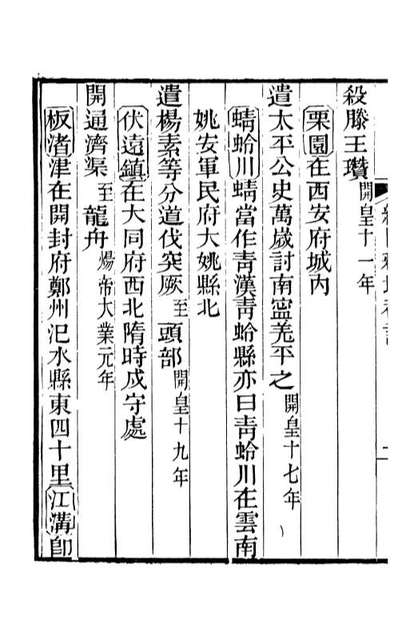 殺滕王瓚開皇十一年
栗園在西安府城內
遣太平公史萬歲討南寧羌平之開皇十七年
蜻蛉川蜻當作靑漢靑蛉縣亦曰靑蛉川在雲南
姚安軍民府大姚縣北
遣楊素等分道伐突厥至頭部開皇十九年
伏遠鎮在大同府西北隋時戍守處
開通濟渠至龍舟煬帝大業元年
板渚津在開封府鄭州汜水縣東四十里江溝卽